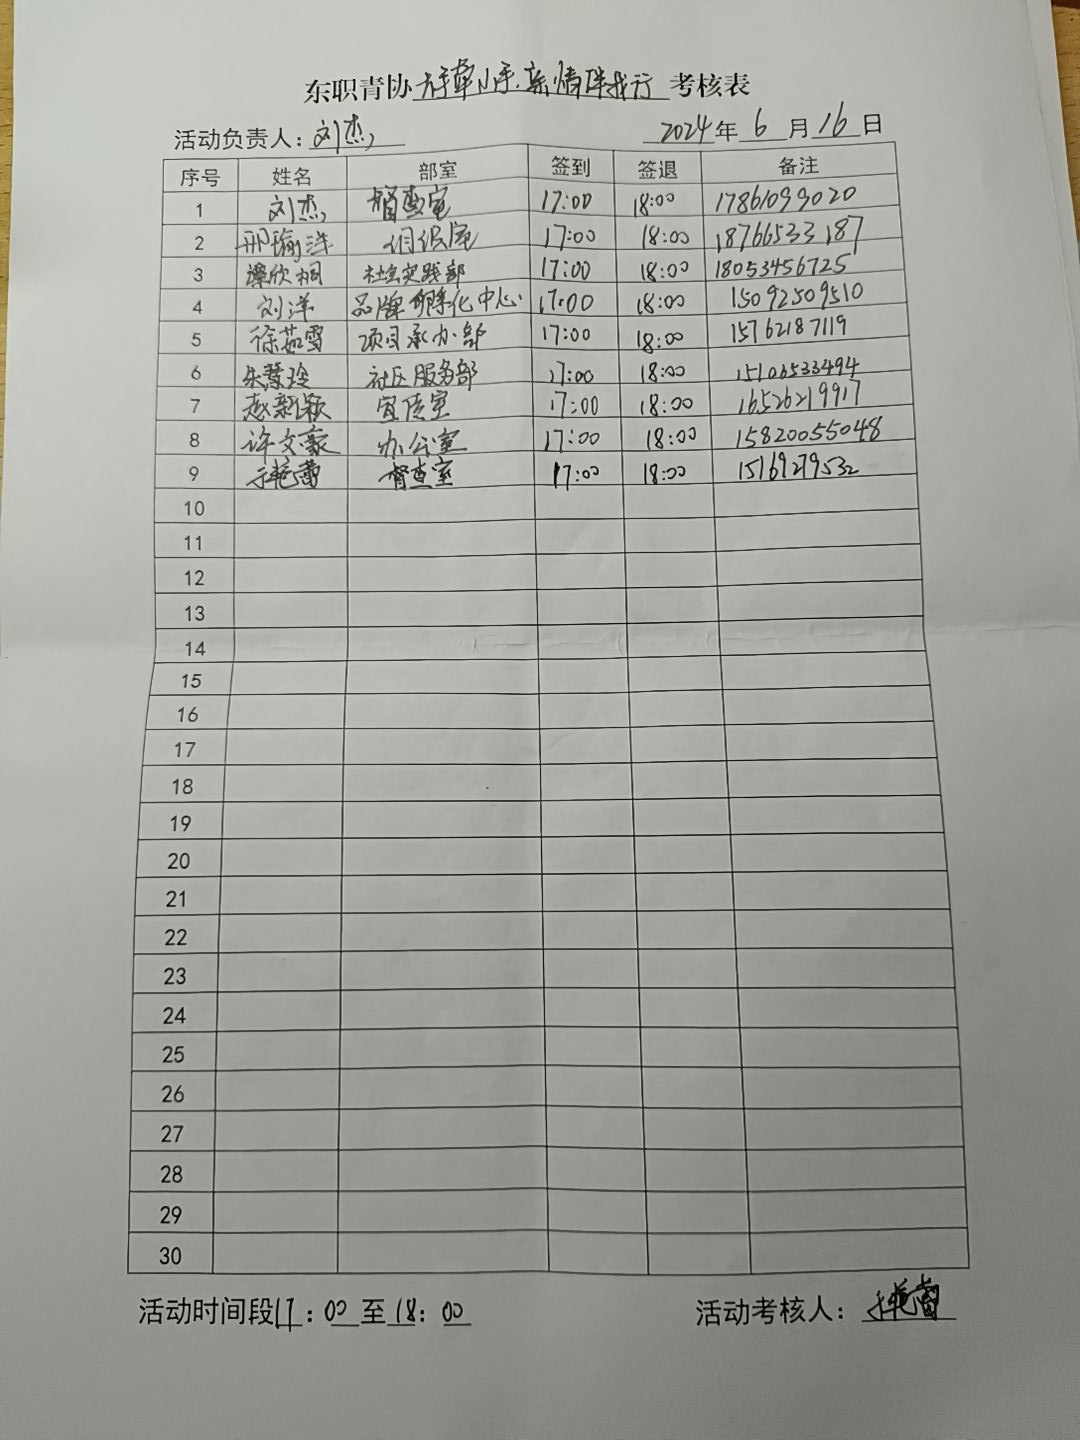 东职青协大手牵小手.亲情伴我行考核表
活动负责人:刘杰
2024年6月16日
序号 姓名 部室 签到 签退 备注
1 刘杰 督查室 17:00 18:00 17861099020
2 邢瑜洋 组织室 17:00 18:00 18766533187
3 欣桐 社会实践部 17:00 18:00 18053456725
4 刘洋 品牌孵化中心 17:00 18:00 15092509510
5 徐茹雪 项目承办部 17:00 18:00 15762187119
6 朱慧玲 社区服务部 17:00 18:00 15106533494
7 赵新颖 宣传室 17:00 18:00 16526219917
8 许文豪 办公室 17:00 18:00 15820055048
9 督查室 17:00 18:00 15169279532
10
11
12
13
14
15
16
17
18
19
20
21
22
23
24
25
26
27
28
29
30
活动时间段17:00至18:00
活动考核人: